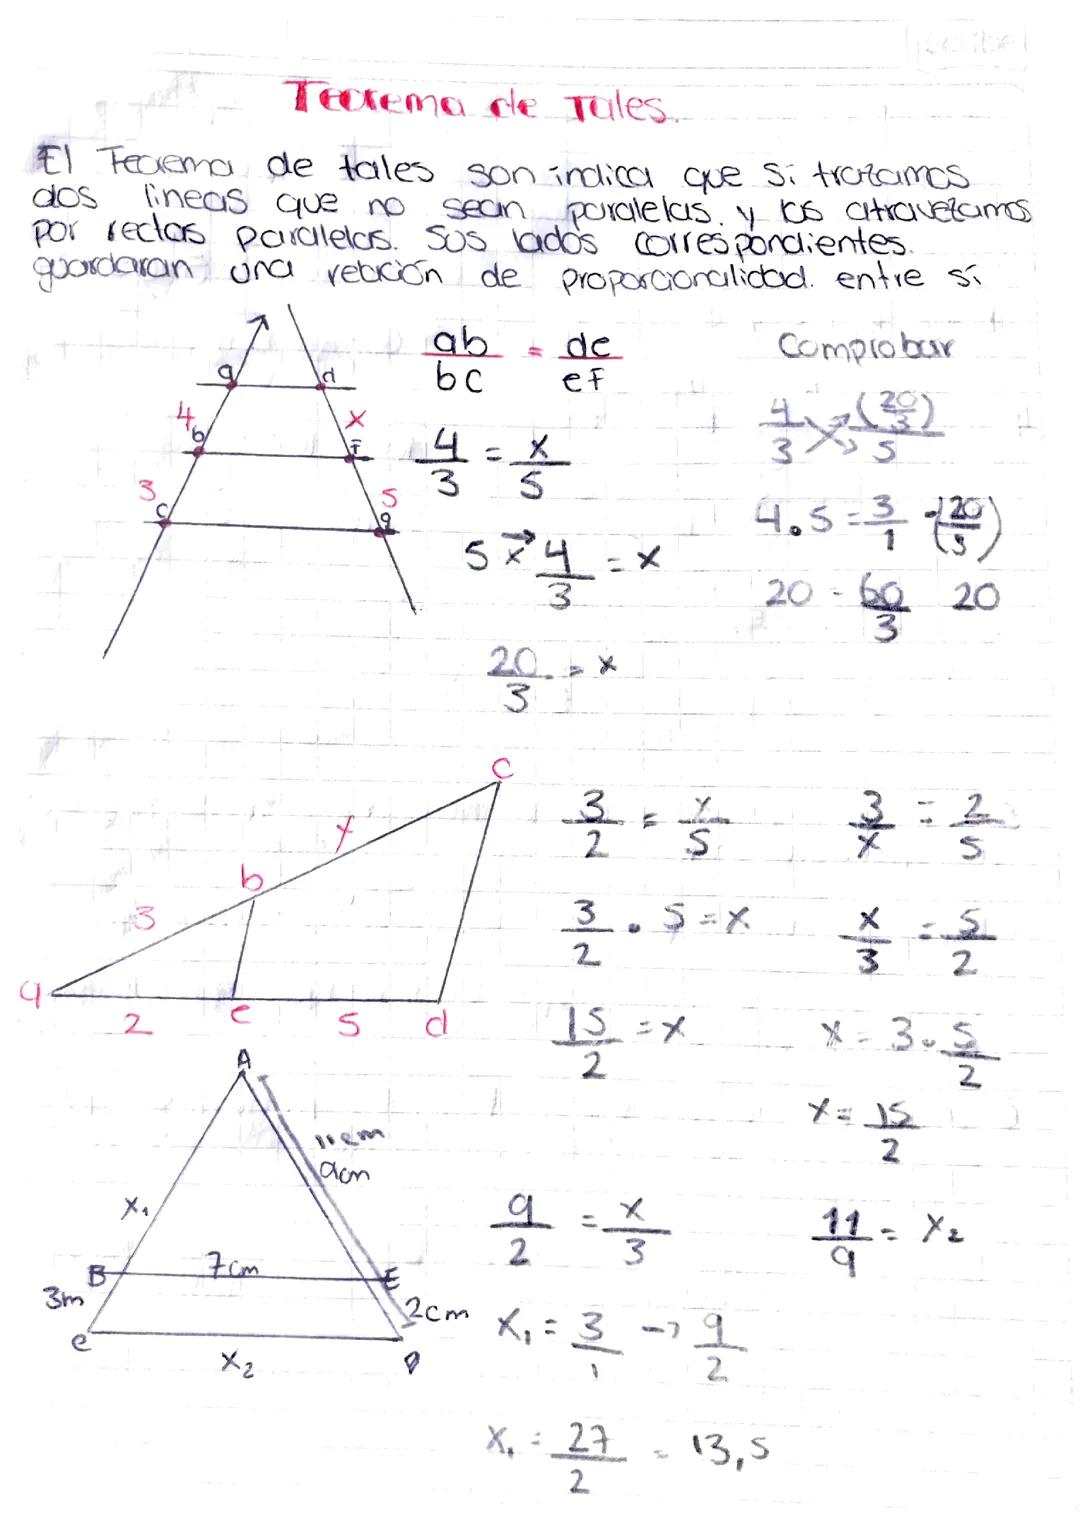 Teorema de Tales.
El Teorema de tales son indica que si trazamos
dos lineas que no sean paralelas. y las atravezamos
por rectas paralelas. Sus lados correspondientes.
guardaran una relación de proporcionalidad. entre sí
ab/bc = de/ef
Comprobar
a d
4 x
b F
3 5
c g
4/3 = x/5
5 x 4/3 = x
20/3 = x
4/3 x (20/3)/5
4.5 = 3/1 · (20/3)
20 - 60/3 20
c
x
b
3
a
2 e 5 d
3/2 = x/5
3/2 . 5 = x
15/2 = x
3/x = 2/5
x/3 = 5/2
x = 3 . 5/2
x = 15/2
A
11cm
9cm
x₁
B 7cm E
3m 2cm
e D
x₂
9/2 = x/3
11/9 = x₂
x₁ = 3/1 → 9/2
x₁ = 27/2 = 13,5